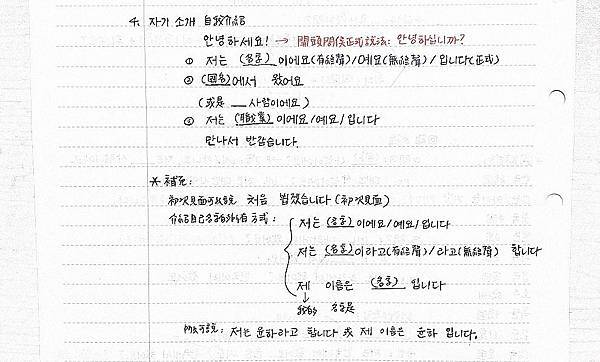 4. 자기 소개 自我介紹
안녕하세요! → 開頭關係正式說法: 안녕하십니까?
① 저는 (名字) 이에요(有結聲)/예요(無結聲)/입니다(正式)
② (國名)에서 왔어요
(或是 ___ 사람이에요)
③ 저는 (職業) 이에요/예요/입니다
만나서 반갑습니다.
* 補充:
初次見面可以說 처음 뵙겠습니다 (初次見面)
介紹自己名字的 方式:
저는 (名字) 이에요/예요/입니다
저는 (名字)이라고(有結聲)/라고(無結聲) 합니다
제 이름은 (名字) 입니다
我的 名字是
所以可說: 저는 윤하라고 합니다 或 제 이름은 윤하 입니다.